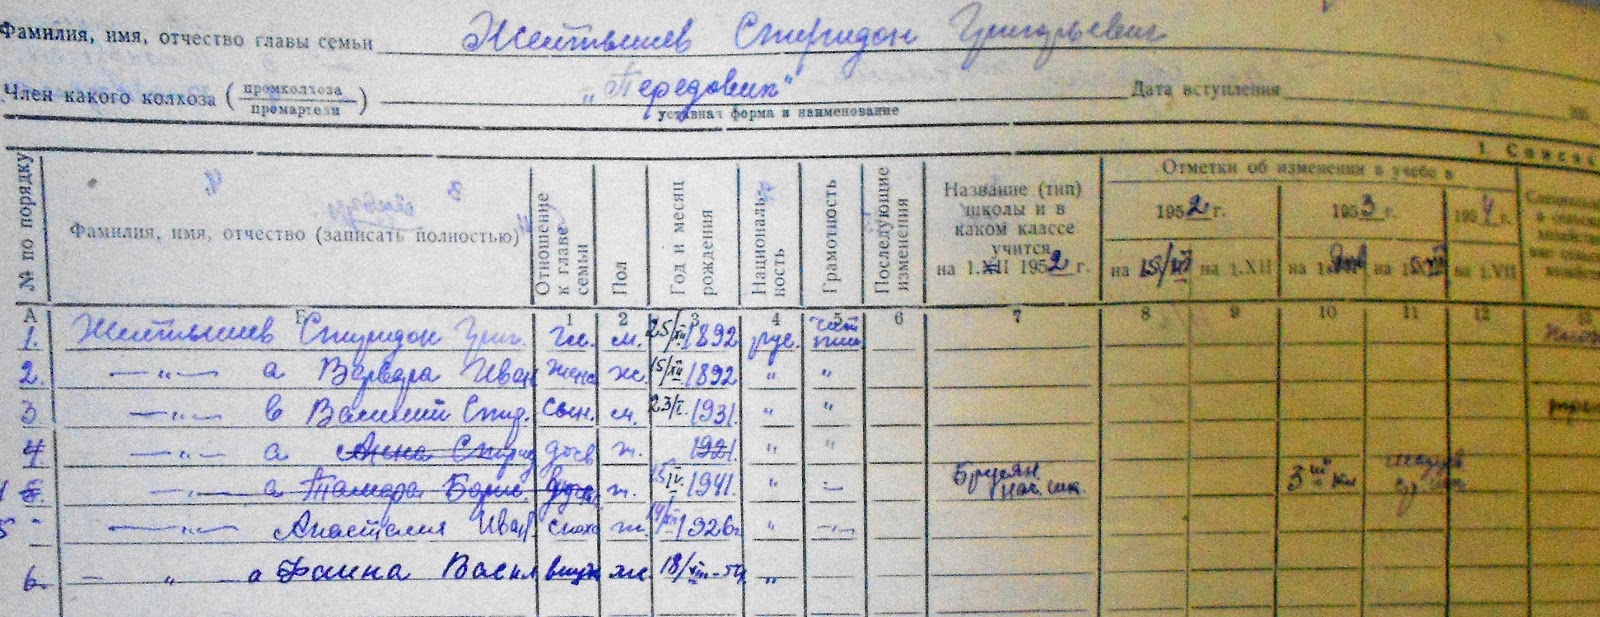 Фамилия, имя, отчество главы семьи Желтышев Спиридон Григорьевич
Член какого колхоза (промколхоза промартели) „Передовик" Дата вступления
уставная форма и наименование
1. Списо
№ по порядку
Фамилия, имя, отчество (записать полностью)
Отношение к главе семьи
Пол
Год и месяц рождения
Националь- ность
Грамотность
Последующие изменения
Название (тип) школы и в каком классе учится на 1.XII 1952 г.
Отметки об изменении в учебе в
1952 г. 1953 г. 1954 г.
на 15/VI на 1.XII на 1 на 1 на 1.VII
А Б 1 2 3 4 5 6 7 8 9 10 11 12 13
1. Желтышев Спиридон Григ. гл. м. 25/XII 1892 рус.
2. —„— а Варвара Иван жена ж. 15/XII 1892 „ „
3 —„— в Василий Спид. сын. м. 23/I. 1931. „ „
4 —„— а Анна Спирид дочь ж. 1921. „ „
5. —„— а Тамара Борис. ж. 15/IV. 1941. „ — Брусян. нач. шк. 3ий кл
5 —„— Анастасия Иван. сноха ж. 1926г „ —„—
6. — „ — а Фаина Васил внучк ж. 18/VIII-54 „